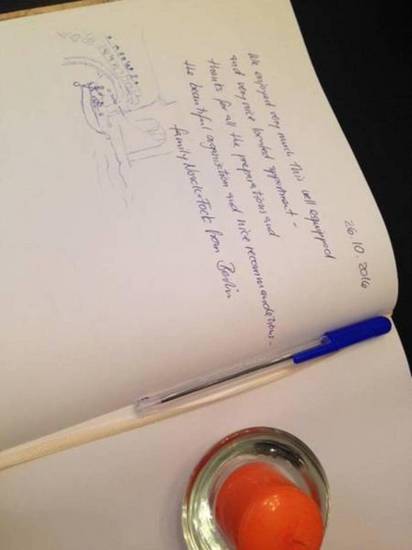 26.10.2016
We enjoyed very much this well equipped
and very nice located appartment -
thanks for all the preparations and
the beautiful organisation and nice recommendations -
family from Berlin